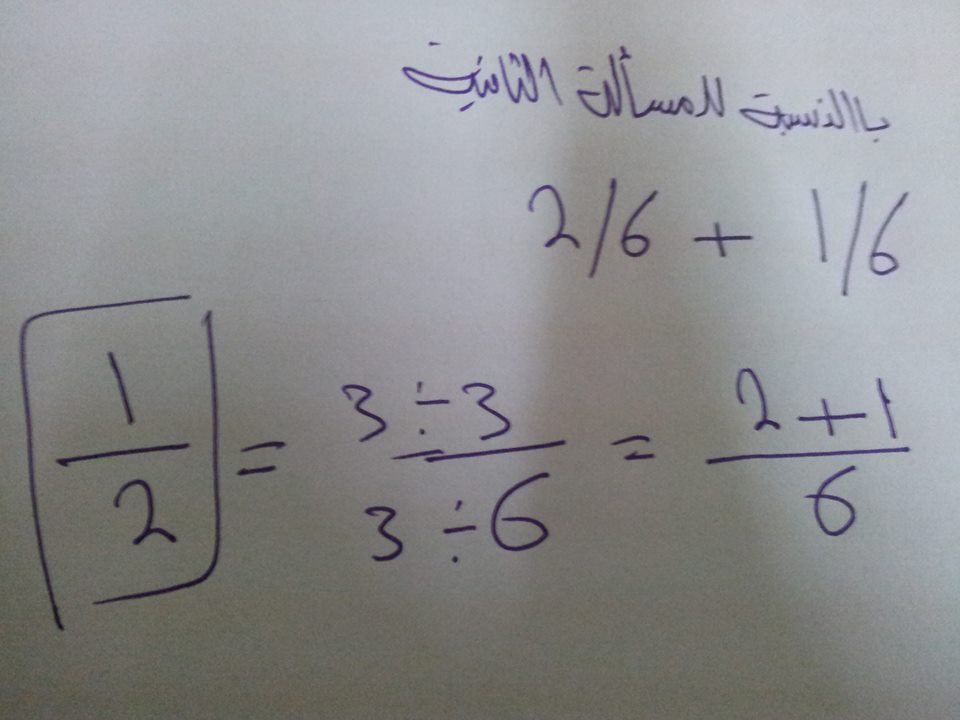 بالنسبة للمسألة الثانية
2/6 + 1/6
1/2 = 3÷3/3÷6 = 2+1/6